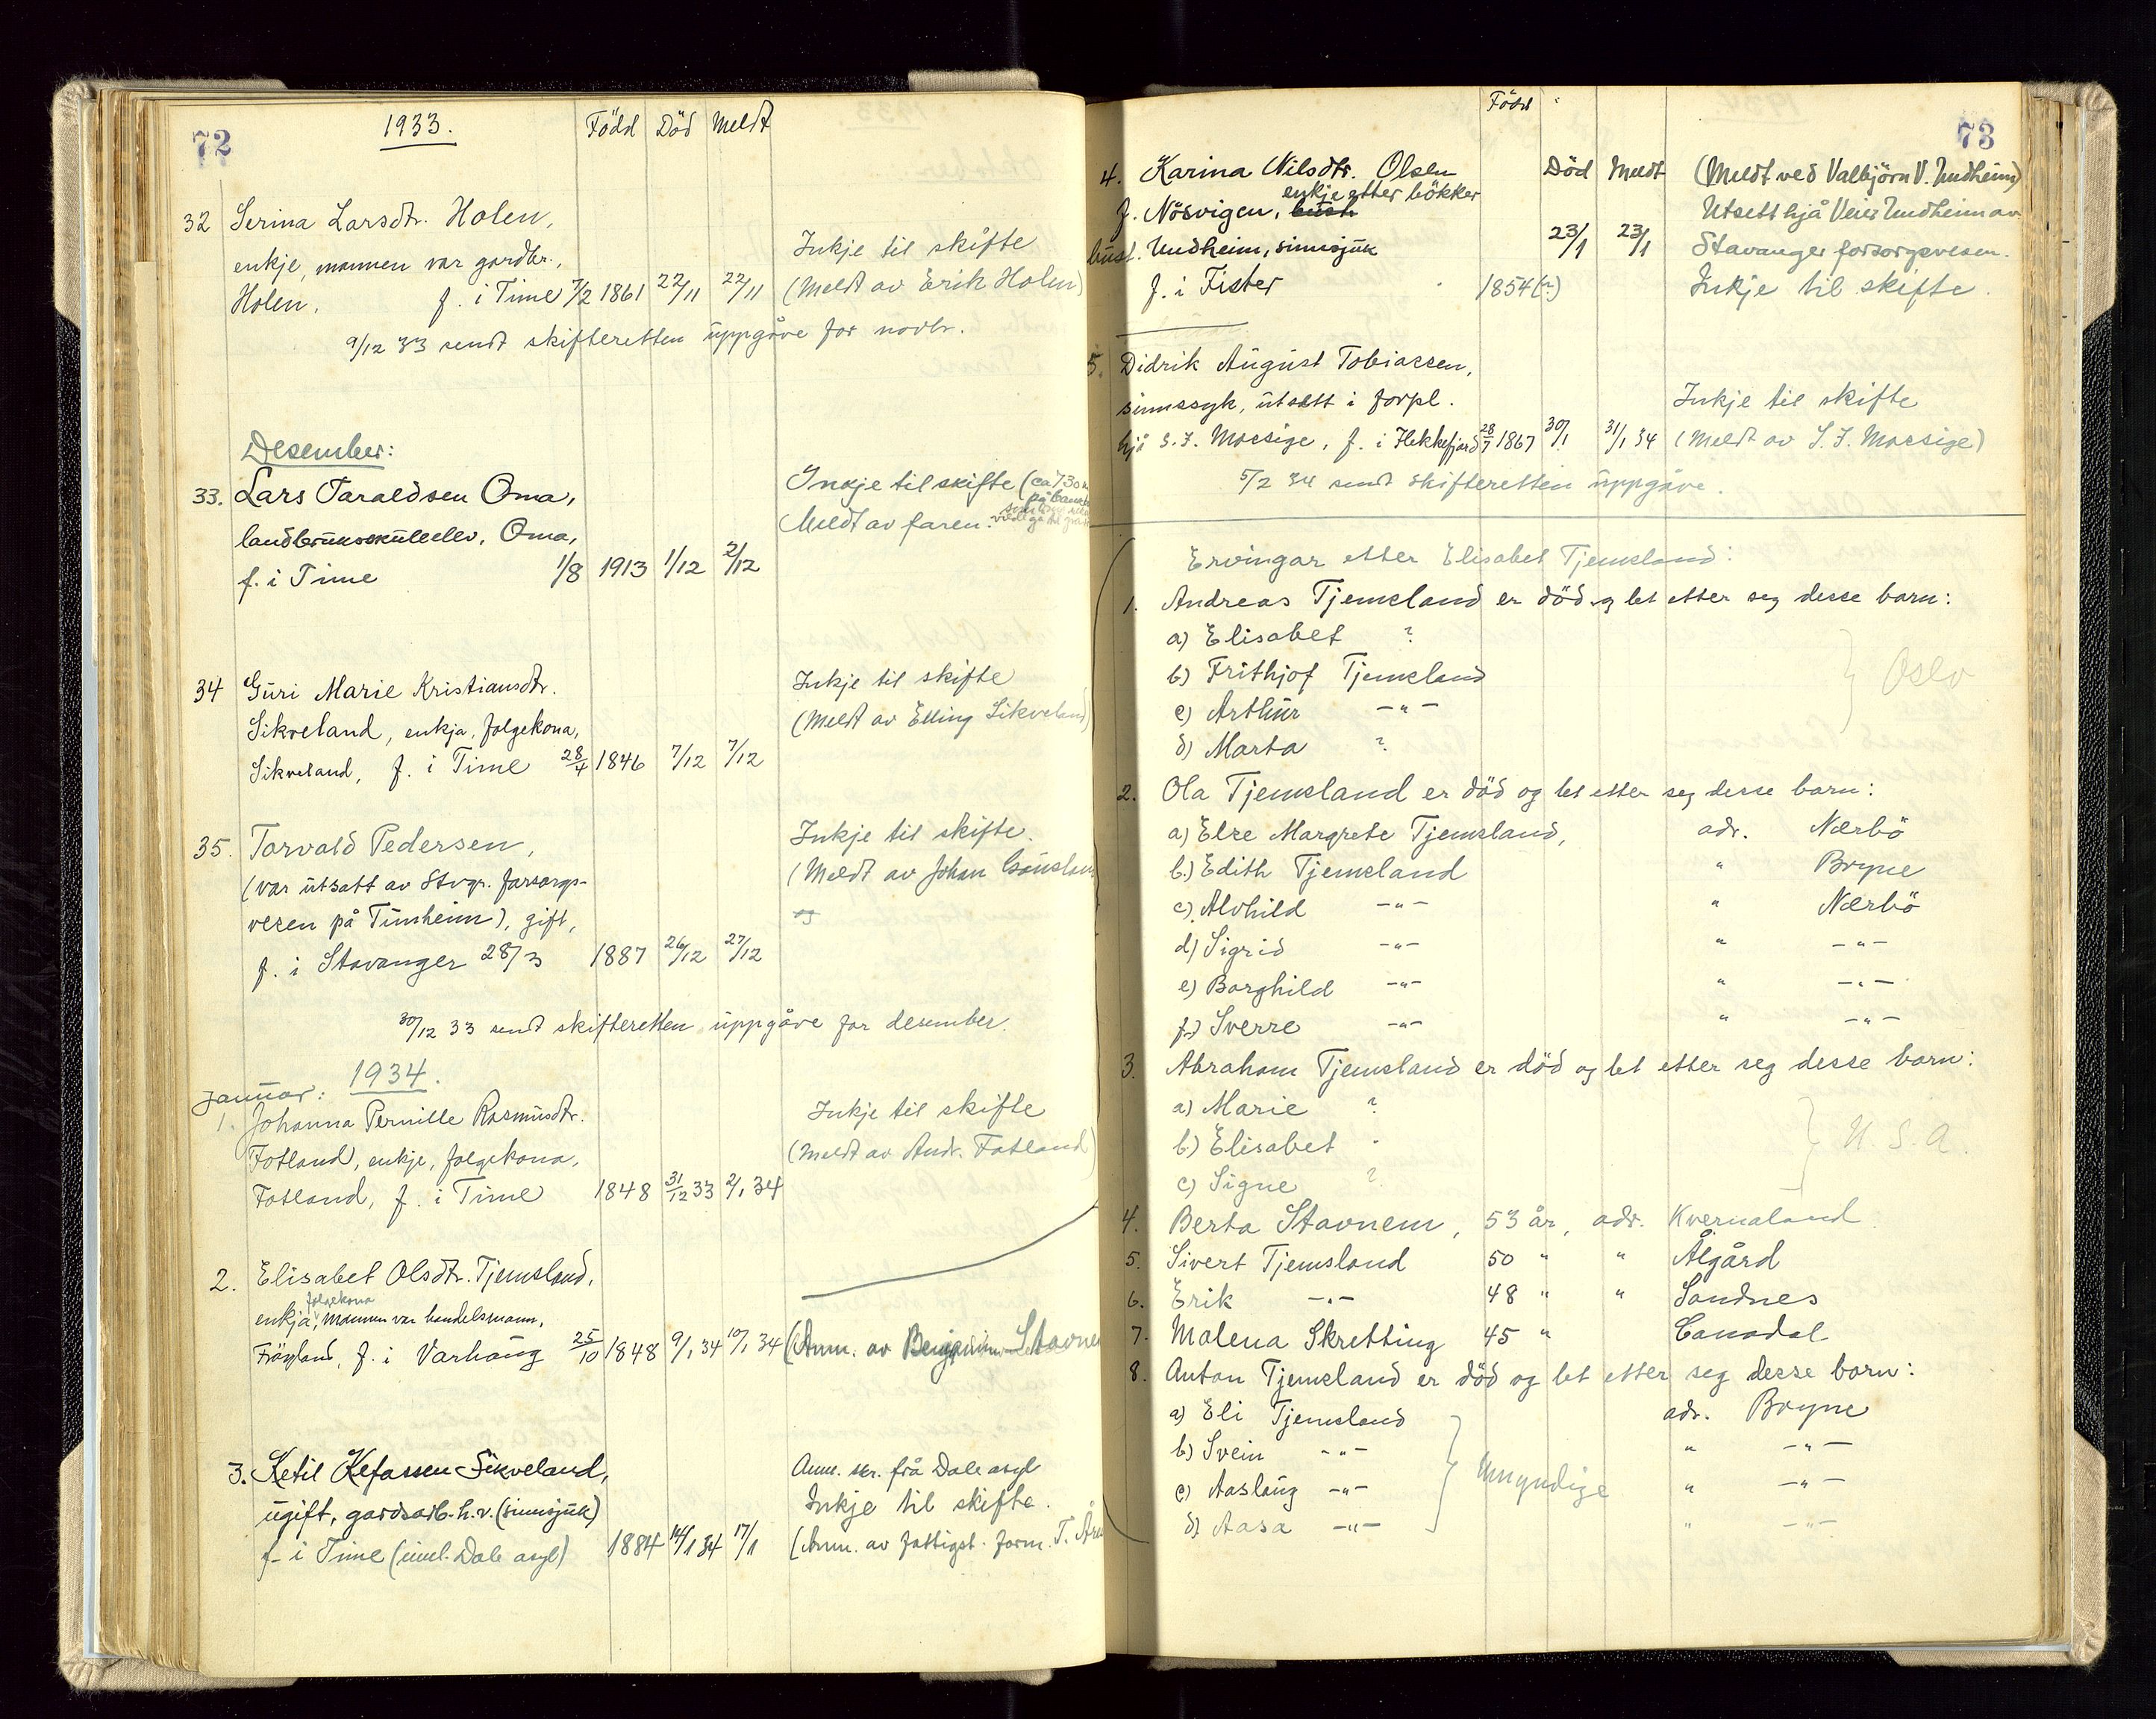 72
1933. Född Död Meldt
32 Serina Larsdtr. Holen,
enkje, mannen var gardbr., Inkje til skifte
Holen. f. i Time 7/2 1861 22/11 22/11 (Meldt av Erik Holen)
9/12 33 sendt skifteretten uppgåve for novbr.
Desember:
33. Lars Taraldsen Oma, Inkje til skifte (ca 730 kr
på bank
landbruksskuleelev, Oma, Meldt av faren.
f. i Time 1/8 1913 1/12 2/12
34 Guri Marie Kristiansdtr. Inkje til skifte
Sikveland, enkja, folgekona, (Meldt av Elling Sikveland)
Sikveland, f. i Time 28/4 1846 7/12 7/12
35. Torvald Pedersen, Inkje til skifte.
(var utsatt av Stvgr. forsorgs- (Meldt av Johan
vesen på Tunheim), gift, og
f. i Stavanger 28/3 1887 26/12 27/12
30/12 33 sendt skifteretten uppgåve for desember.
1934.
Januar:
1. Johanna Pernille Rasmusdtr. Inkje til skifte
Fotland, enkje, folgekona, (Meldt av Andr. Fotland)
Fotland, f. i Time 1848 31/12 33 2/1 34
2. Elisabet Olsdtr. Tjemsland,
folgekona
enkja, mannen var handelsmann,
Fröyland, f. i Varhaug 25/10 1848 9/1 34 10/1 34 (Anm. av Benjamin Stavnem
3. Ketil Kefassen Sikveland, Anm. skr. frå Dale asyl
ugift, gardsarb. h.v. (sinnsjuk) Inkje til skifte.
f. i Time (innl. Dale asyl) 1884 14/1 34 17/1 (Anm. av fattigst. form. T.
73
Född
4. Karina Nilsdtr. Olsen Död Meldt (Meldt ved Valbjörn V. Undheim)
enkje etter bökker
f. Nösvigen, bush Utsett hjå Veier Undheim av
bust. Undheim, sinnsjuk 23/1 23/1 Stavanger forsorgsvesen.
f. i Fister 1854(?) Inkje til skifte.
5. Didrik August Tobiassen,
sinnssyk, utsett i forpl. Inkje til skifte
hjå S. J. Mossige, f. i Flekkefjord 28/7 1867 30/1 31/1 34 (Meldt av S. J. Mossige)
5/2 34 sendt skifteretten uppgåve.
Ervingar etter Elisabet Tjemsland:
1. Andreas Tjemsland er död og let etter seg desse barn:
a) Elisabet ?
b) Frithjof Tjemsland
c) Arthur -"-
d) Marta ?
Oslo
2. Ola Tjemsland er död og let etter seg desse barn:
a) Else Margrete Tjemsland, adr. Nærbö
b.) Edith Tjemsland " Bryne
c) Alvhild -"- " Nærbö
d) Sigrid -"- " -"-
e) Borghild -"- " -"-
f.) Sverre -"- " -"-
3. Abraham Tjemsland er död og let etter seg desse barn:
a) Marie ?
b) Elisabet "
c) Signe ?
U.S.A.
4. Berta Stavnem, 53 år, adr. Kvernaland
5. Sivert Tjemsland 50 " " Ålgård
6. Erik -"- 48 " " Sandnes
7. Malena Skretting 45 " Canada
8. Anton Tjemsland er död og let etter seg desse born:
a) Eli Tjemsland adr. Bryne
b) Svein -"- " -"-
c) Aaslaug -"- Umyndige " -"-
d) Aasa -"- " -"-